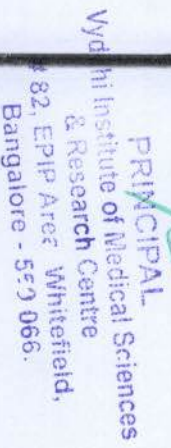 PRINCIPAL
Vydehi Institute of Medical Sciences
& Research Centre
# 82, EPIP Area Whitefield,
Bangalore - 560 066.